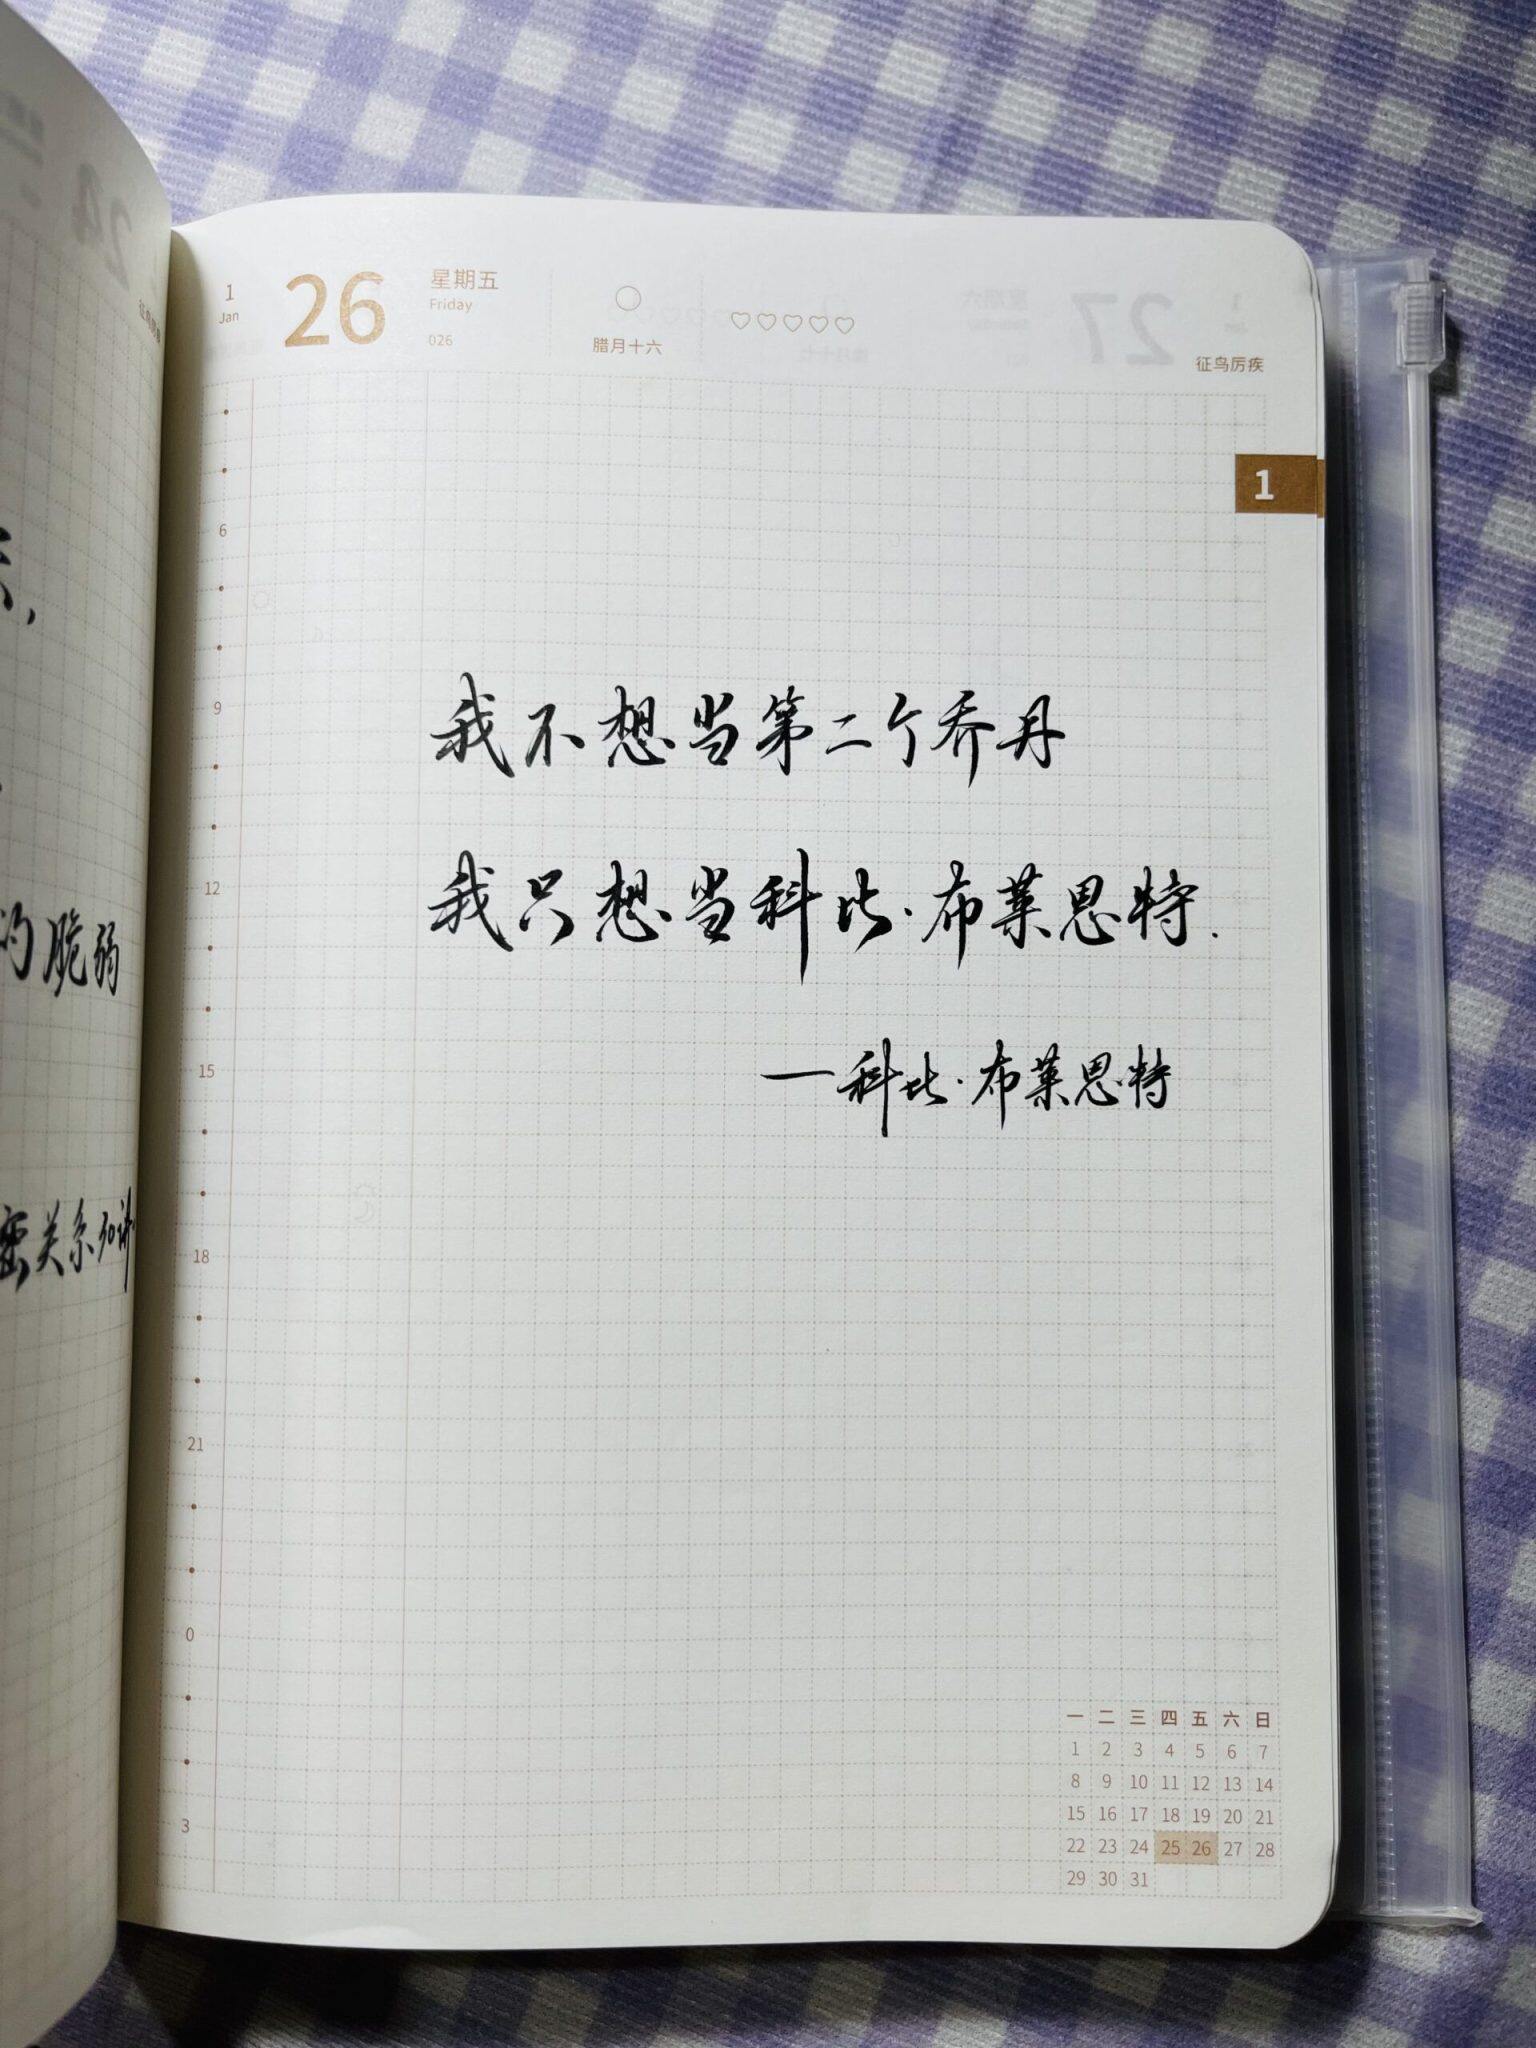 天,
的脆弱
密关系知讲
1
Jan
26
星期五
Friday
026
腊月十六
征鸟厉疾
1
我不想当第二个乔丹
我只想当科比·布莱恩特.
—科比·布莱恩特
6
9
12
15
18
21
0
3
一 二 三 四 五 六 日
1 2 3 4 5 6 7
8 9 10 11 12 13 14
15 16 17 18 19 20 21
22 23 24 25 26 27 28
29 30 31